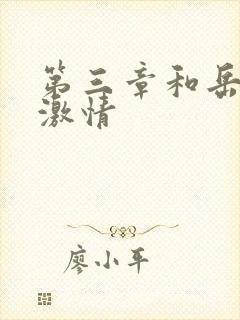 第三章和岳
激情
廖小平